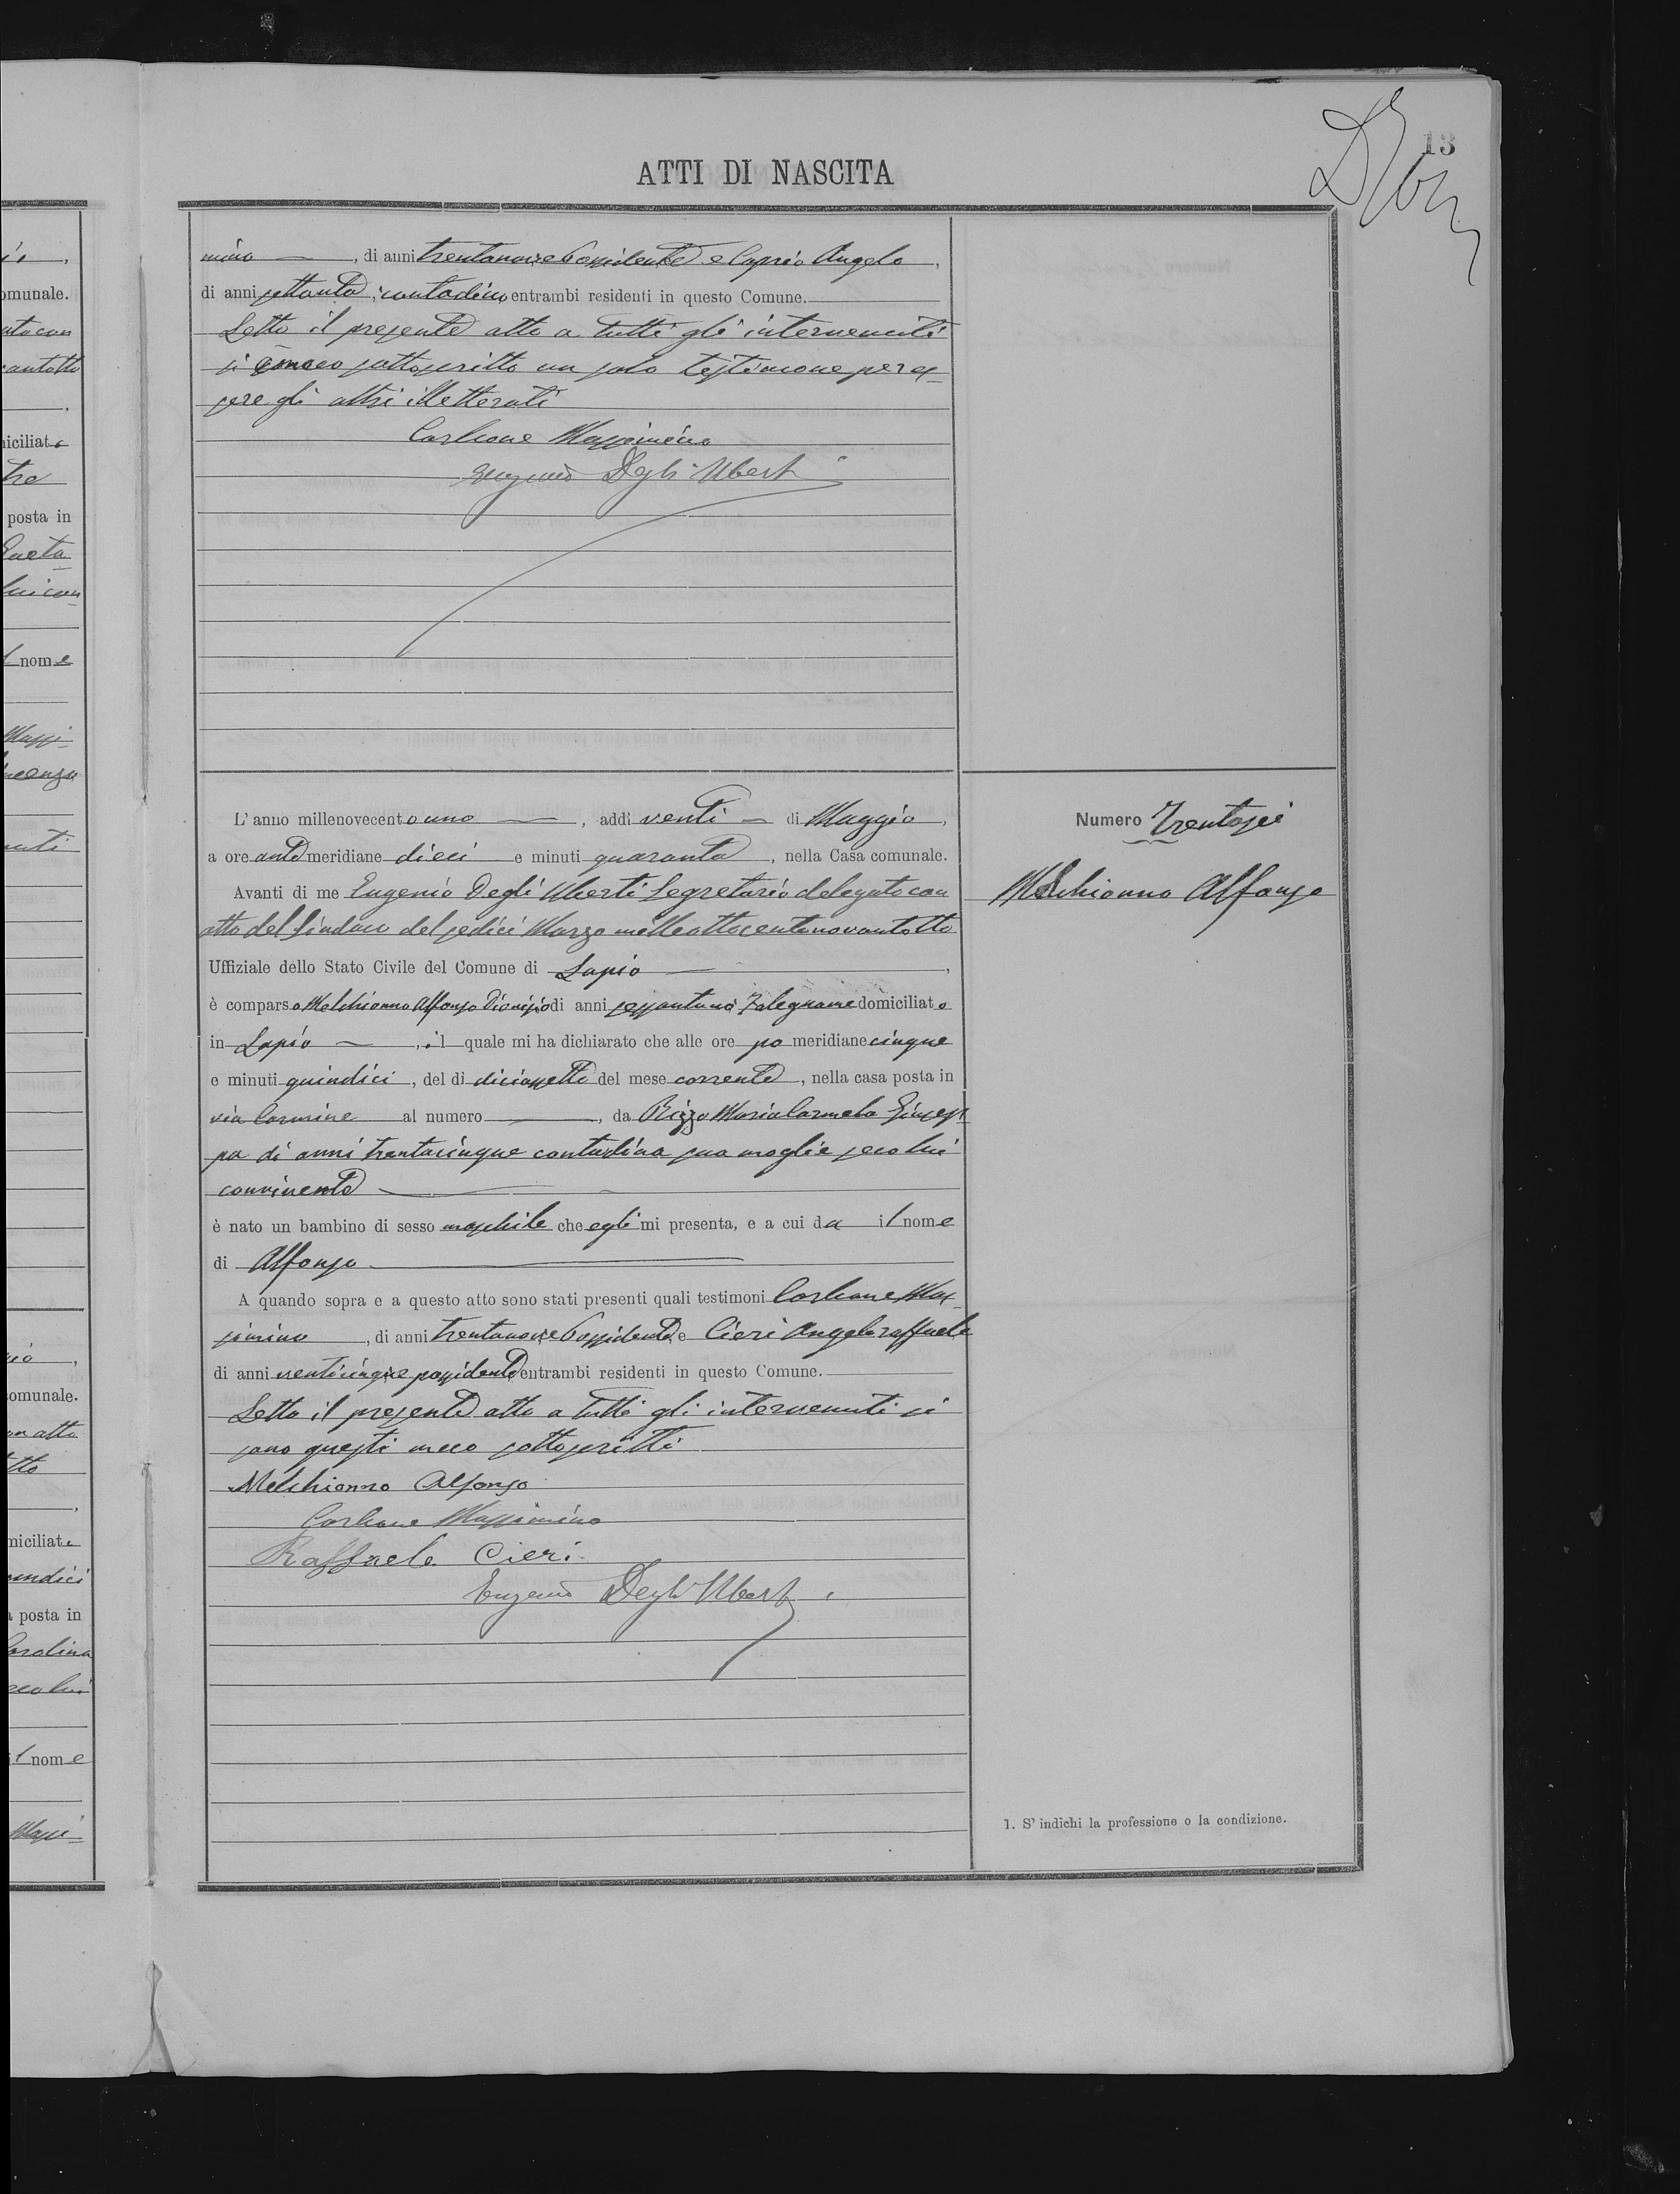 13
ATTI DI NASCITA
mino —, di anni trentanove Possidente e Caprio Angelo,
di anni settanta, contadino entrambi residenti in questo Comune.
Letto il presente atto a tutti gli intervenuti
si è meco sottoscritto un solo testimone per es-
sere gli altri illetterati
Carbone Massimino
Eugenio Degli Uberti
L'anno millenovecento uno —, addì venti — di Maggio,
a ore ante meridiane dieci e minuti quaranta, nella Casa comunale.
Numero Trentasei
Avanti di me Eugenio Degli Uberti Segretario delegato con
Melchionno Alfonso
atto del Sindaco del sedici Marzo milleottocentonovantotto
Uffiziale dello Stato Civile del Comune di Lapio —,
è comparso Melchionno Alfonso Dionisio di anni sessantuno Falegname domiciliato
in Lapio —, il quale mi ha dichiarato che alle ore po meridiane cinque
e minuti quindici, del dì diciassette del mese corrente, nella casa posta in
via Carmine al numero —, da Rizzo Maria Carmela Giusep-
pa di anni trentacinque contadina sua moglie seco lui
convivente —
è nato un bambino di sesso maschile che egli mi presenta, e a cui da il nome
di Alfonso —
A quando sopra e a questo atto sono stati presenti quali testimoni Carbone Mas-
simino, di anni trentanove Possidente, e Cieri Angeloraffaele
di anni venticinque possidente entrambi residenti in questo Comune.
Letto il presente atto a tutti gli intervenuti si
sono questi meco sottoscritti
Melchionno Alfonso
Carbone Massimino
Raffaele Cieri
Eugenio Degli Uberti
1. S' indichi la professione o la condizione.